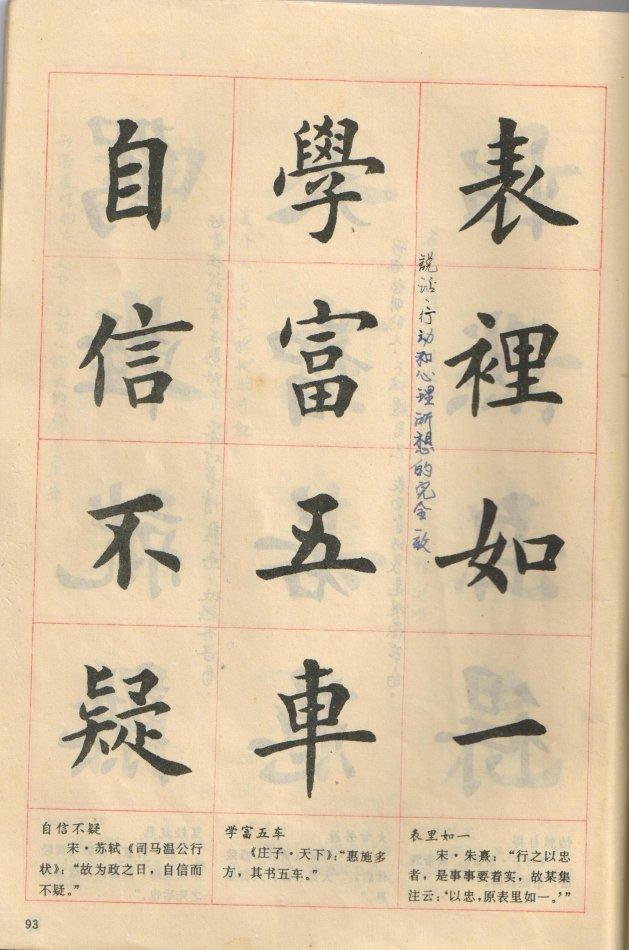 表裡如一
說话、行动和心裡所想的完全一致.
學富五車
自信不疑
自信不疑
宋·苏轼《司马温公行
状》：“故为政之日，自信而
不疑。”
学富五车
《庄子·天下》：“惠施多
方，其书五车。”
表里如一
宋·朱熹：“行之以忠
者，是事事要着实，故某集
注云：‘以忠，原表里如一。’”
93